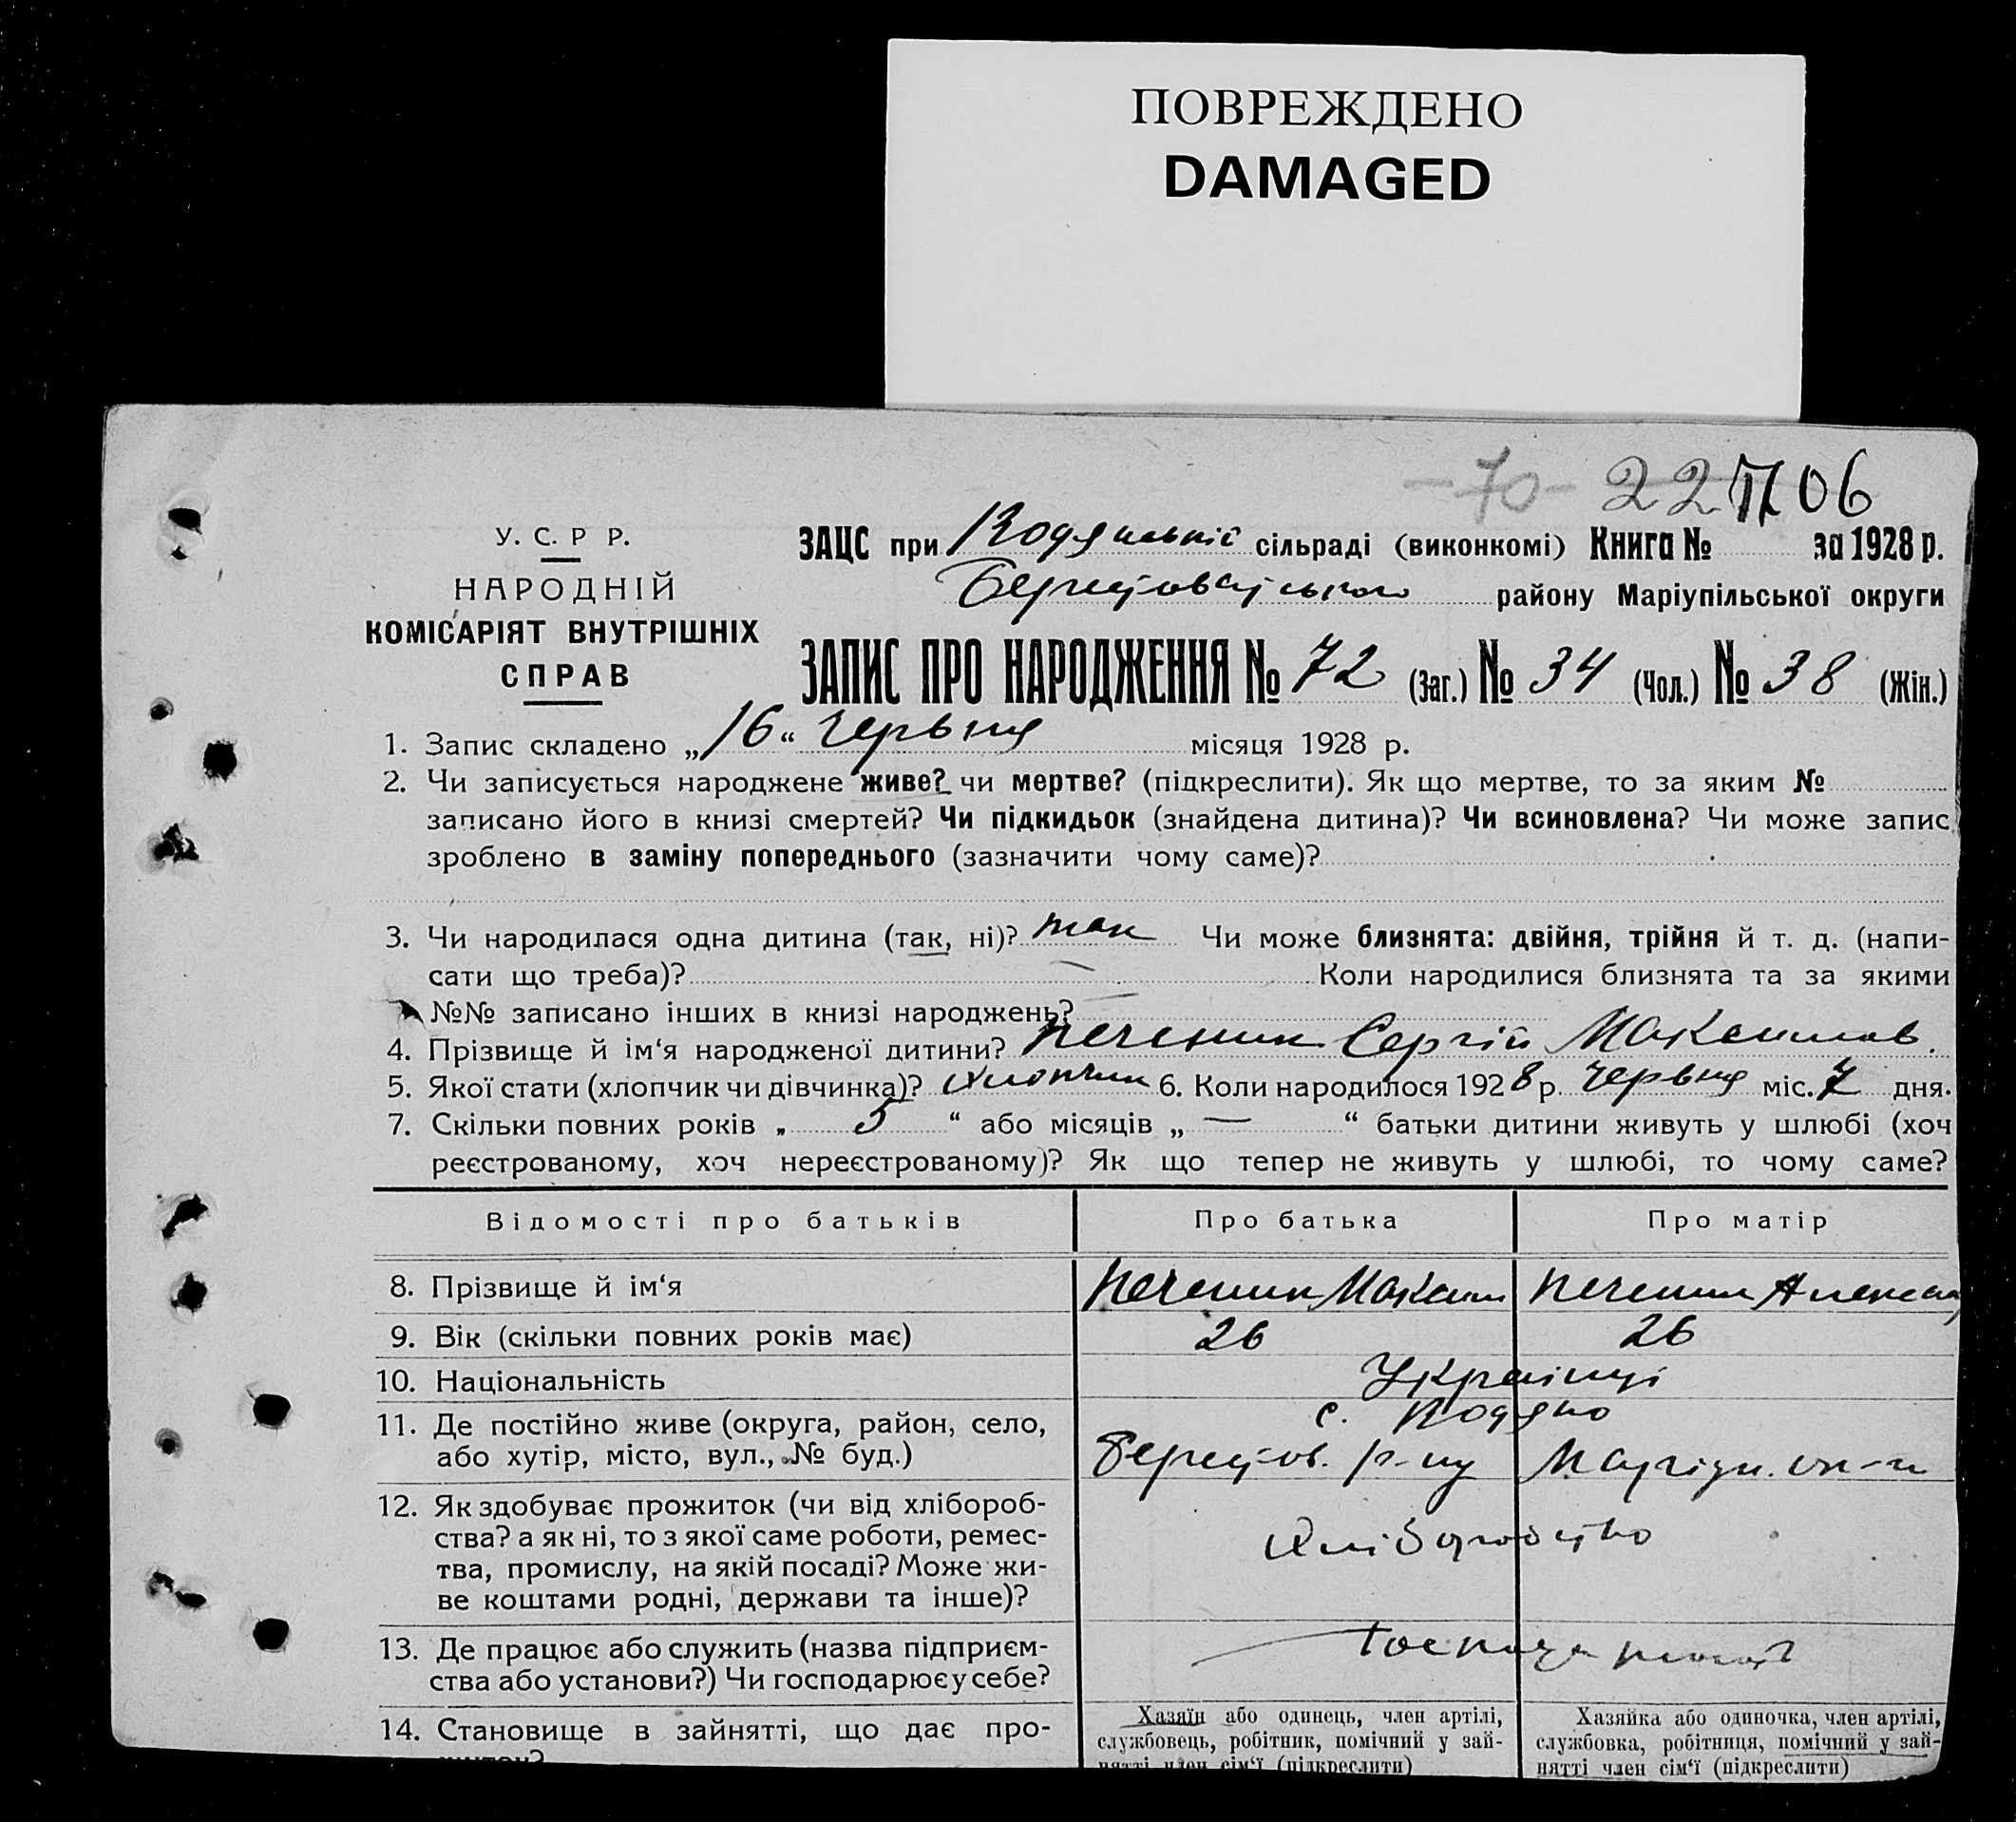 ПОВРЕЖДЕНО
DAMAGED
-70- 22 06
У. С. Р Р.
НАРОДНІЙ
КОМІСАРІЯТ ВНУТРІШНІХ
СПРАВ
ЗАЦС при Водянській сільраді (виконкомі) Книга № за 1928 р.
району Маріупільської округи
ЗАПИС ПРО НАРОДЖЕННЯ № 72 (Заг.) № 34 (Чол.) № 38 (Жін.)
1. Запис складено „16“ червня місяця 1928 р.
2. Чи записується народжене живе? чи мертве? (підкреслити). Як що мертве, то за яким №
записано його в книзі смертей? Чи підкидьок (знайдена дитина)? Чи всиновлена? Чи може запис
зроблено в заміну попереднього (зазначити чому саме)?
3. Чи народилася одна дитина (так, ні)? так Чи може близнята: двійня, трійня й т. д. (напи-
сати що треба)? — Коли народилися близнята та за якими
№№ записано інших в книзі народжень? —
4. Прізвище й ім‘я народженої дитини? Печеник Сергій Максимов.
5. Якої стати (хлопчик чи дівчинка)? хлопчик 6. Коли народилося 1928 р. червня міс. 7 дня.
7. Скільки повних років „ 5 “ або місяців „ — “ батьки дитини живуть у шлюбі (хоч
реєстрованому, хоч нереєстрованому)? Як що тепер не живуть у шлюбі, то чому саме?
Відомості про батьків Про батька Про матір
8. Прізвище й ім‘я Печеник Максим Печеник Александ
9. Вік (скільки повних років має) 26 26
10. Національність Українці
11. Де постійно живе (округа, район, село, с. Водяно
або хутір, місто, вул., № буд.) р-ну Маріуп. ок-и
12. Як здобуває прожиток (чи від хлібороб-
ства? а як ні, то з якої саме роботи, ремес- Хліборобство
тва, промислу, на якій посаді? Може жи-
ве коштами родні, держави та інше)?
13. Де працює або служить (назва підприєм-
ства або установи?) Чи господарює у себе?
14. Становище в зайнятті, що дає про-
житок?
Хазяїн або одинець, член артілі,
службовець, робітник, помічний у зай-
нятті член сім‘ї (підкреслити)
Хазяйка або одиночка, член артілі,
службовка, робітниця, помічний у зай-
нятті член сім‘ї (підкреслити)